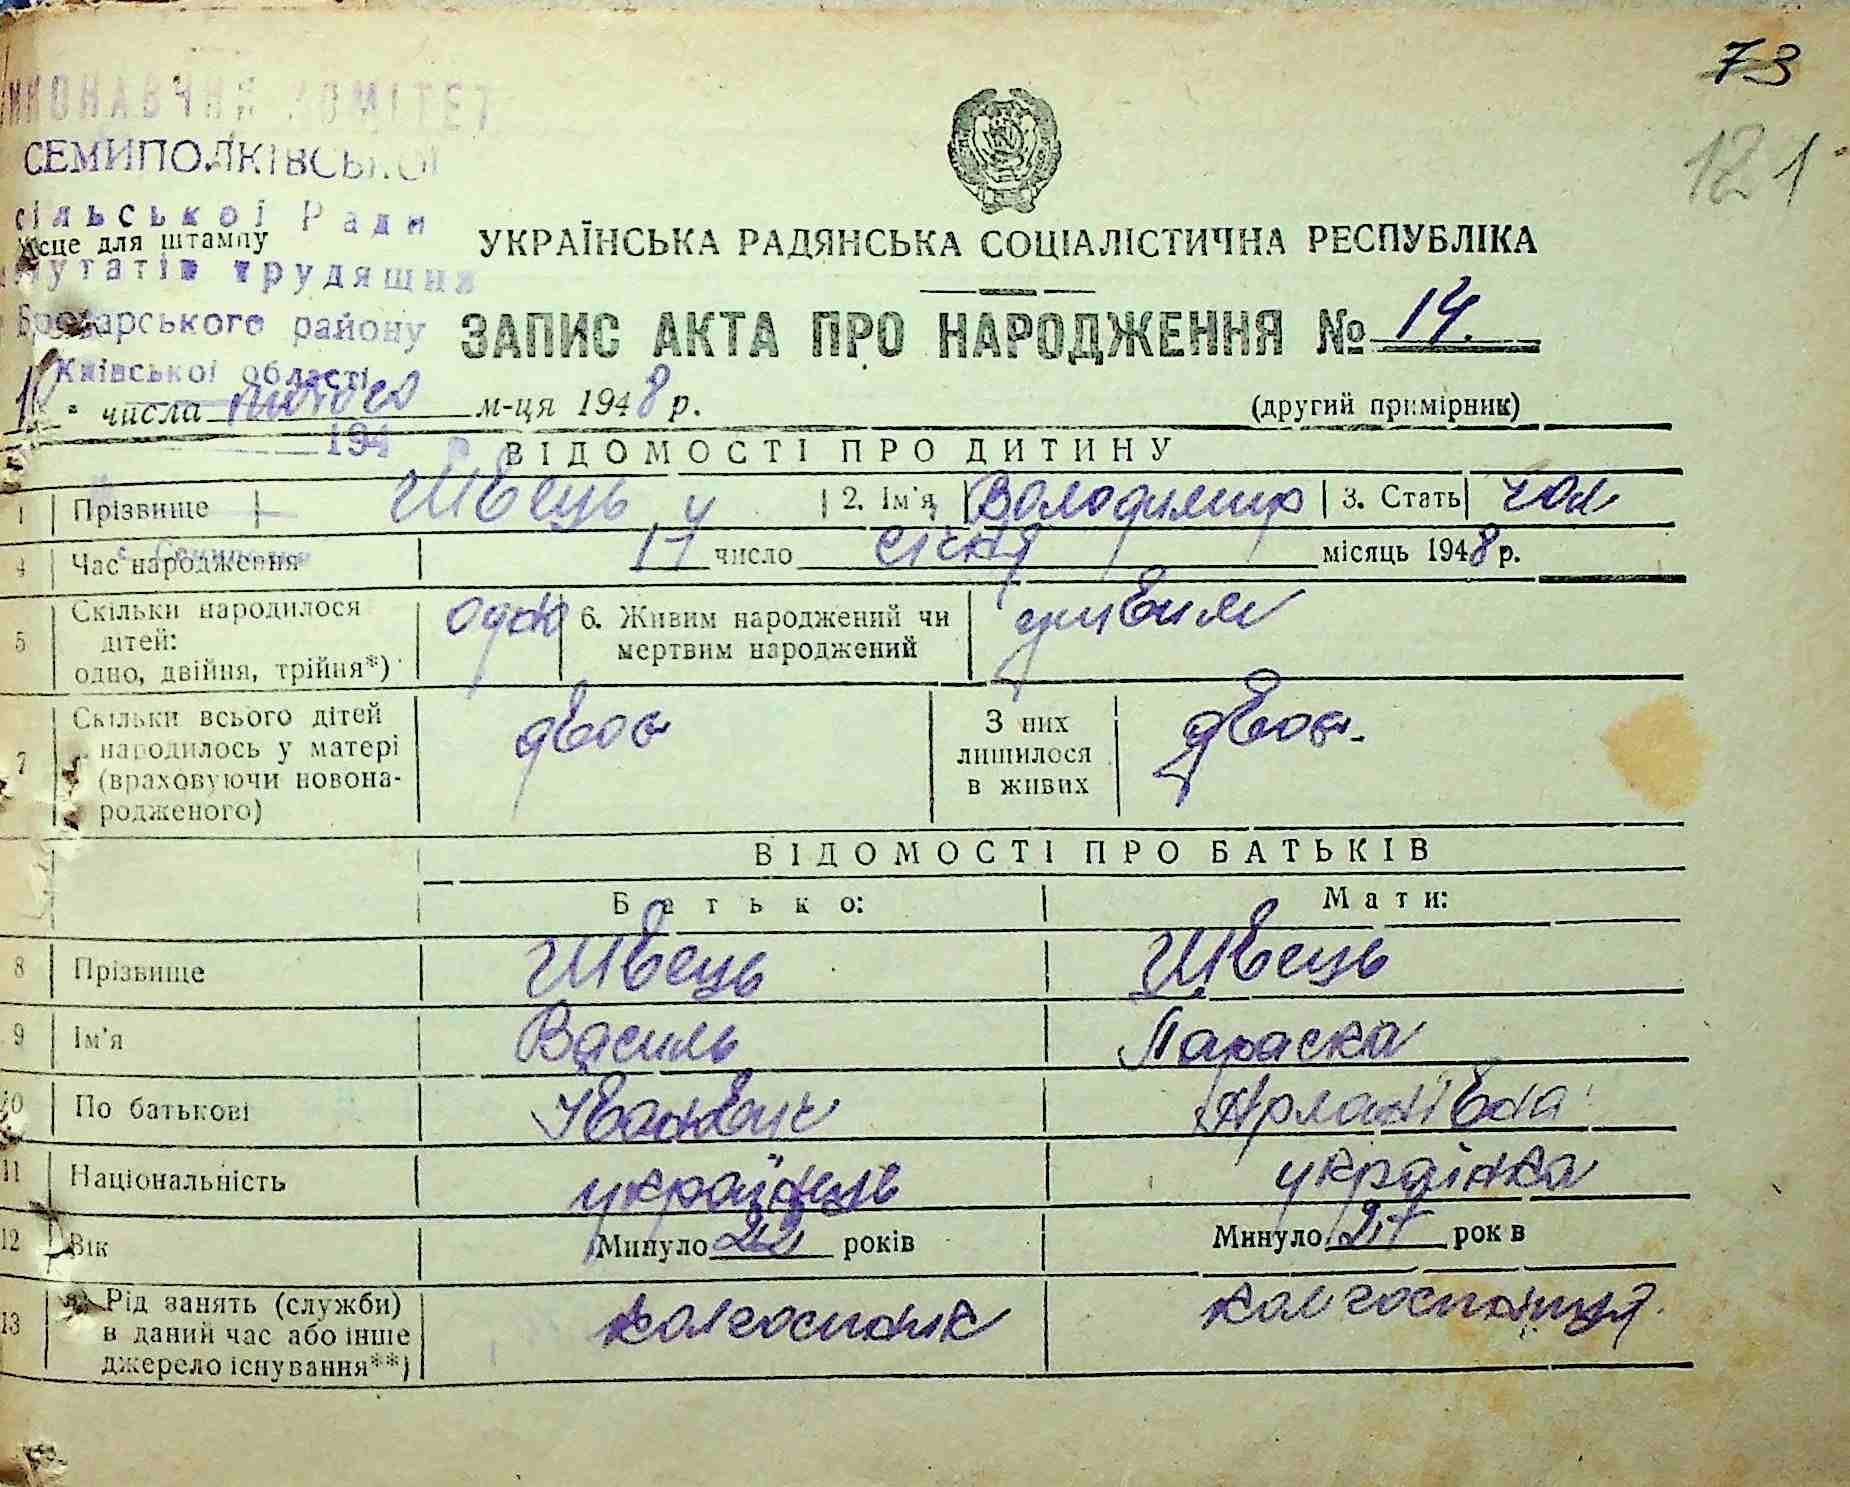 73
121
ИКОНАВЧИЙ КОМІТЕТ
СЕМИПОЛКІВСЬКОЇ
сільської Ради
Місце для штампу
путатів трудящих
Броварського району
Київської області
УКРАЇНСЬКА РАДЯНСЬКА СОЦІАЛІСТИЧНА РЕСПУБЛІКА
ЗАПИС АКТА ПРО НАРОДЖЕННЯ № 14.
числа лютого м-ця 1948 р. (другий примірник)
194
ВІДОМОСТІ ПРО ДИТИНУ
1 Прізвище Швець 2. Ім'я Володимир 3. Стать чол
4 Час народження 17 число січня місяць 1948 р.
5 Скільки народилося дітей: одно, двійня, трійня*) одно 6. Живим народжений чи мертвим народжений живим
7 Скільки всього дітей народилось у матері (враховуючи новонародженого) двоє З них лишилося в живих двоє.
ВІДОМОСТІ ПРО БАТЬКІВ
Батько: Мати:
8 Прізвище Швець Швець
9 Ім'я Василь Параска
10 По батькові Іванович
11 Національність українець українка
12 Вік Минуло 22 років Минуло 27 років
13 Рід занять (служби) в даний час або інше джерело існування**) колгоспник колгоспниця.